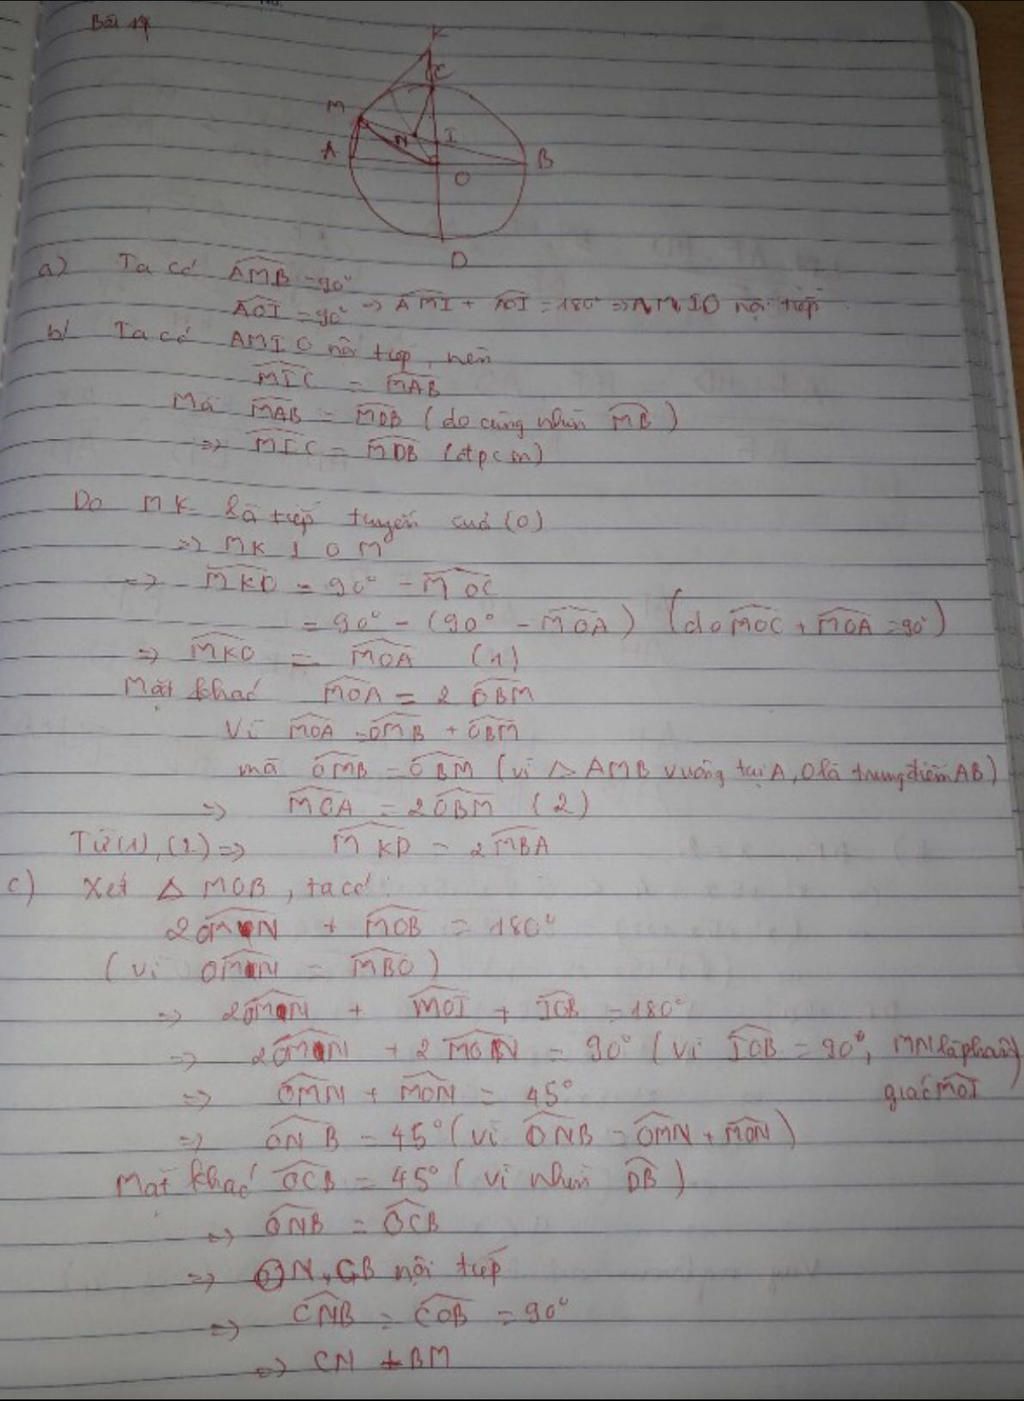 Bài 17
K
C
M
N I
A B
O
D
a) Ta có \widehat{AMB} = 90°
\widehat{AOI} = 90° => \widehat{AMI} + \widehat{AOI} = 180° => A, M, I, O nội tiếp
b) Ta có AMIO nội tiếp, nên
\widehat{MIC} = \widehat{MAB}
Mà \widehat{MAB} = \widehat{MDB} (do cùng nhìn \widehat{MB})
=> \widehat{MIC} = \widehat{MDB} (đpcm)
Do MK là tiếp tuyến của (O)
=> MK ⊥ OM
=> \widehat{MKD} = 90° - \widehat{MOC}
= 90° - (90° - \widehat{MOA}) (do \widehat{MOC} + \widehat{MOA} = 90°)
=> \widehat{MKO} = \widehat{MOA} (1)
Mặt khác \widehat{MOA} = 2 \widehat{OBM}
Vì \widehat{MOA} = \widehat{OMB} + \widehat{OBM}
mà \widehat{OMB} = \widehat{OBM} (vì △ AMB vuông tại A, O là trung điểm AB)
=> \widehat{MOA} = 2\widehat{OBM} (2)
Từ (1), (2) => \widehat{MKD} = 2\widehat{MBA}
c) Xét △ MOB, ta có:
2\widehat{OMN} + \widehat{MOB} = 180°
(vì \widehat{OMN} = \widehat{MBO})
=> 2\widehat{OMN} + \widehat{MOI} + \widehat{IOB} = 180°
=> 2\widehat{OMN} + 2\widehat{MON} = 90° (vì \widehat{IOB} = 90°, MN là phân
giác \widehat{MOI})
=> \widehat{OMN} + \widehat{MON} = 45°
=> \widehat{ONB} = 45° (vì \widehat{ONB} = \widehat{OMN} + \widehat{MON})
Mặt khác \widehat{OCB} = 45° (vì nhìn \widehat{DB})
=> \widehat{ONB} = \widehat{OCB}
=> O, N, C, B nội tiếp
=> \widehat{CNB} = \widehat{COB} = 90°
=> CN ⊥ BM